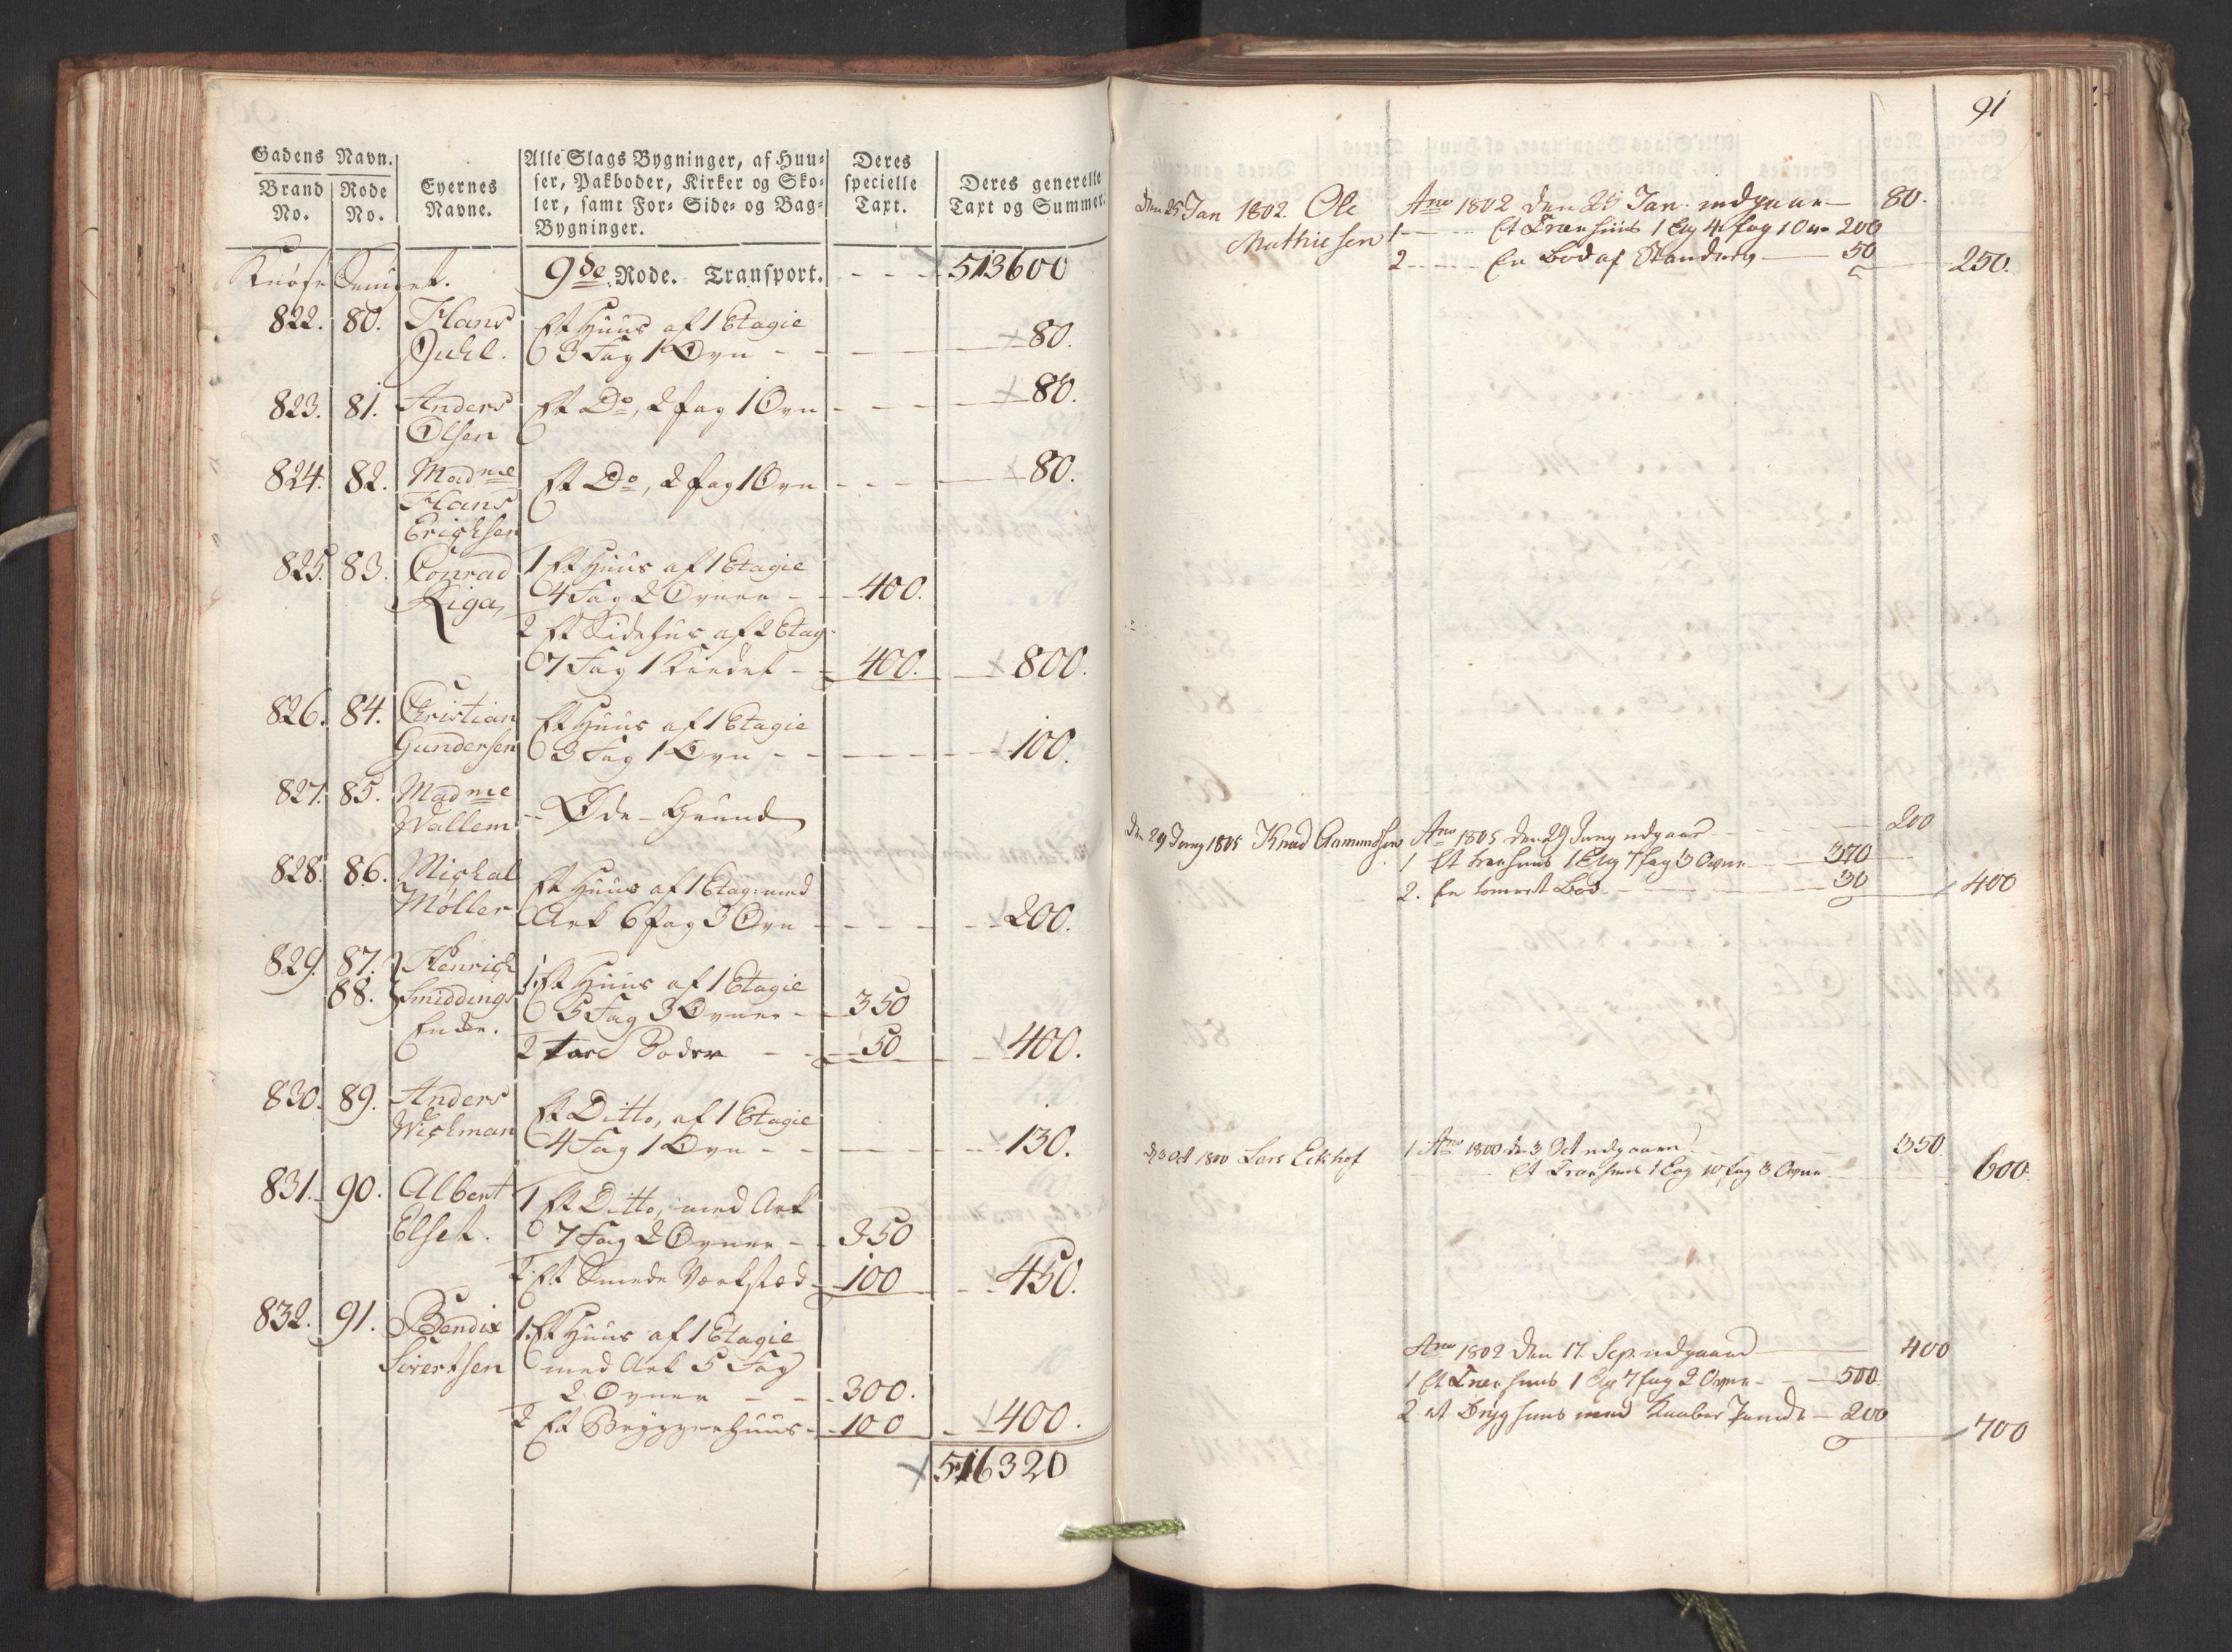 Gadens Navn.
Brand No.
Rode No.
Eyernes Navne.
Alle Slags Bygninger, af Huu=
ser, Pakboder, Kirker og Sko=
ler, samt For= Side= og Bag=
Bygninger.
Deres specielle Taxt.
Deres generelle Taxt og Summer.
9de Rode. Transport. - - - 513600
822. 80. Hans Et Huus af 1 Etagie
Juhl. 3 Fag 1 Ovn - - - 80.
823. 81. Anders Et Do, 2 fag 1 Ovn - - - 80.
Olsen
824. 82. Madme Et Do, 2 fag 1 Ovn - - - 80.
Hans
Erichsen
825. 83. Conrad 1 Et Huus af 1 Etagie
Riga, 4 Fag 2 Ovner - - 400.
2 Et Sidehus af 2 Etag:
7 Fag 1 Kiedel - 400. 800.
826. 84. Christian Et Huus af 1 Etagie
Gundersen 3 Fag 1 Ovn - - - 100.
827. 85. Madme - Øde - Grund
Wallem
828. 86. Michal Et Huus af 1 Etag: med
Møller Ark 6 fag 3 Ovn - - - 200.
829. 87. Henrich 1. Et Huus af 1 Etagie
88. Smiddings 5 Fag 3 Ovner - 350
Enke. 2 Boder - - 50 400.
830. 89. Anders Et Ditto, af 1 Etagie
Wichman 4 Fag 1 Ovn - - - 130.
831. 90. Albert 1 Et Ditto, med Ark
Elset. 7 Fag 2 Ovner - 350
2. Et Smede Værksted - 100 450.
832. 91. Bendix 1. Et Huus af 1 Etagie
Sivertsen med Ark 5 Fag
2 Ovner - - 300.
2 Et Bryggerhuus - 100 400.
516320
91
den 25 Jan 1802. Ole Ano 1802 den 25 Jan. udgaar - 80.
Mathiesen 1 - - Et Træe huus 1 Etg 4 fag 1 Ovn 200
2 - - En Bod af - 50 250.
den 29 Juny 1805 Knud Aamundsen Ano 1805 den 29 Juny udgaar - 200
1 Et træe huus 1 Etg 7 fag 3 Ovne - 370
2. En tømret Bod - 30 400
d 3 Oct 1800 Lars Eckhof 1 Ano 1800 d 3 Oct udgaaer 350.
Et Træe huus 1 Etg 10 fag 3 Ovne - 600.
Ano 1802 den 17. Sep. udgaaer - 400
1 Et Træe huus 1 Etg 7 fag 2 Ovne - 500.
2 et Bryg huus med Kaaber Pande - 200 700